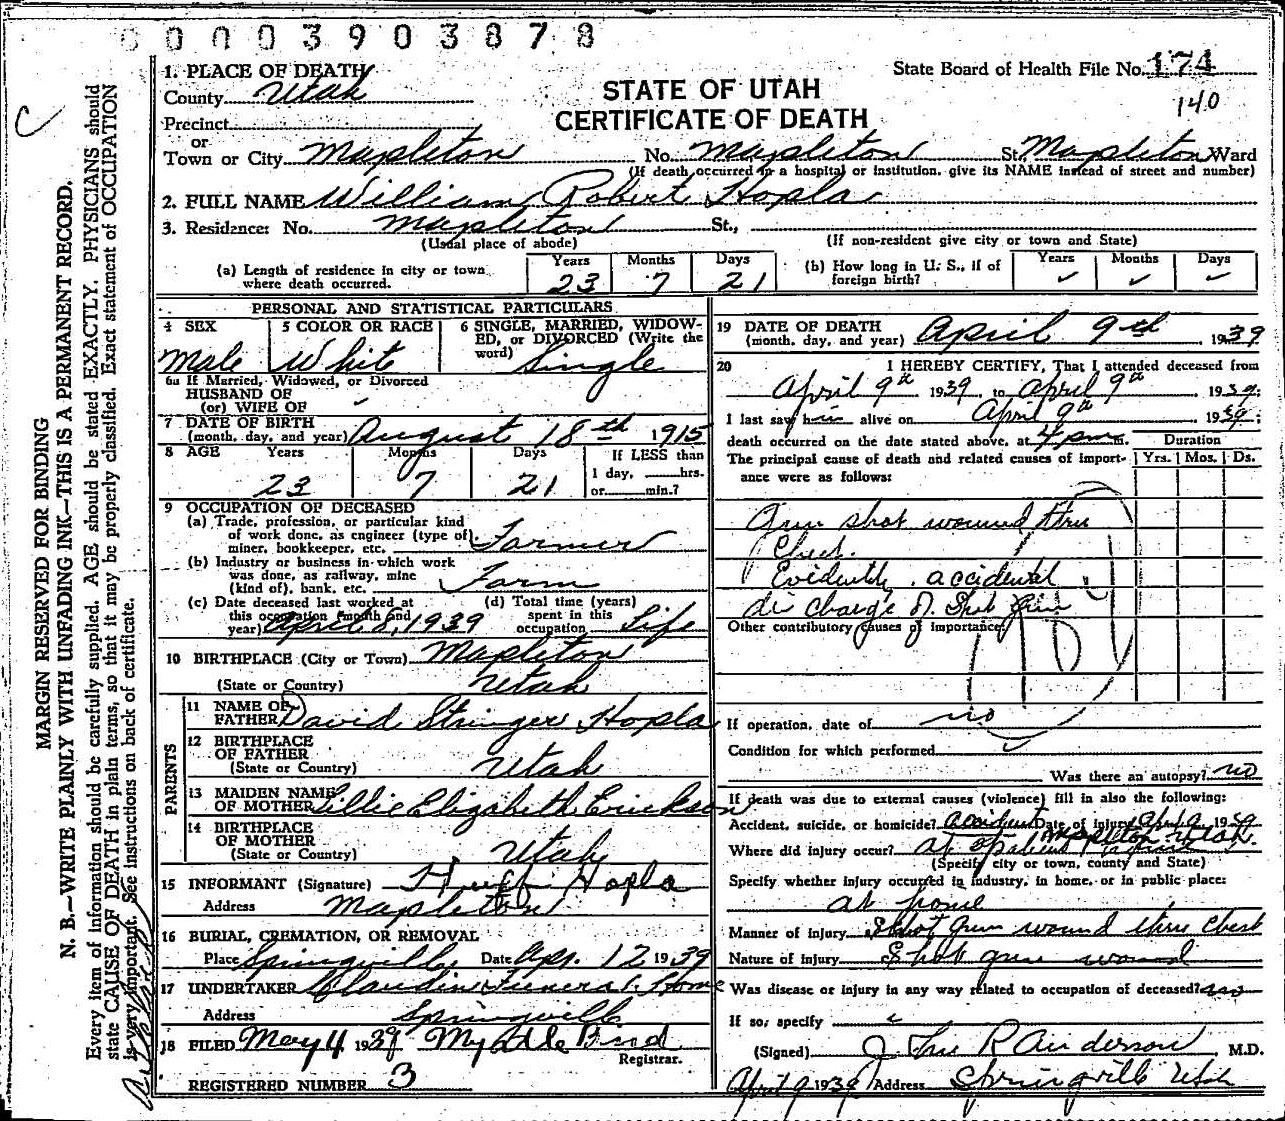 0 0 0 0 3 9 0 3 8 7 8
C
MARGIN RESERVED FOR BINDING
N. B.—WRITE PLAINLY WITH UNFADING INK—THIS IS A PERMANENT RECORD.
Every item of information should be carefully supplied. AGE should be stated EXACTLY. PHYSICIANS should
state CAUSE OF DEATH in plain terms, so that it may be properly classified. Exact statement of OCCUPATION
is very important. See instructions on back of certificate.
STATE OF UTAH
CERTIFICATE OF DEATH
State Board of Health File No. 174
140
1. PLACE OF DEATH
County Utah
Precinct
or
Town or City Mapleton No. Mapleton St., Mapleton Ward
(If death occurred in a hospital or institution, give its NAME instead of street and number)
2. FULL NAME William Robert Hopla
3. Residence: No. Mapleton St.,
(Usual place of abode) (If non-resident give city or town and State)
(a) Length of residence in city or town where death occurred. Years 23 Months 7 Days 21
(b) How long in U. S., if of foreign birth? Years ✓ Months ✓ Days ✓
PERSONAL AND STATISTICAL PARTICULARS
4 SEX Male
5 COLOR OR RACE White
6 SINGLE, MARRIED, WIDOWED, or DIVORCED (Write the word) Single
6a If Married, Widowed, or Divorced
HUSBAND OF
(or) WIFE OF ✓
7 DATE OF BIRTH
(month, day, and year) August 18th 1915
8 AGE Years 23 Months 7 Days 21
If LESS than
1 day, hrs.
or min.?
9 OCCUPATION OF DECEASED
(a) Trade, profession, or particular kind
of work done, as engineer (type of),
miner, bookkeeper, etc. Farmer
(b) Industry or business in which work
was done, as railway, mine
(kind of), bank, etc. Farm
(c) Date deceased last worked at
this occupation (month and
year) April 8, 1939
(d) Total time (years)
spent in this
occupation Life
10 BIRTHPLACE (City or Town) Mapleton
(State or Country) Utah
PARENTS
11 NAME OF
FATHER David Stringer Hopla
12 BIRTHPLACE
OF FATHER
(State or Country) Utah
13 MAIDEN NAME
OF MOTHER Lillie Elizabeth Erickson
14 BIRTHPLACE
OF MOTHER
(State or Country) Utah
15 INFORMANT (Signature) Huff Hopla
Address Mapleton
16 BURIAL, CREMATION, OR REMOVAL
Place Springville Date Apr. 12 1939
17 UNDERTAKER Claudin Funeral Home
Address Springville
18 FILED May 4 1939 Myrtle Bird
Registrar.
REGISTERED NUMBER 3
19 DATE OF DEATH
(month, day, and year) April 9th, 1939
20 I HEREBY CERTIFY, That I attended deceased from
April 9th 1939, to April 9th 1939.
I last saw him alive on April 9th 1939;
death occurred on the date stated above, at 4 pm m.
The principal cause of death and related causes of importance were as follows:
Duration
Yrs. Mos. Ds.
Gun shot wound thru
Chest.
Evidently accidental
discharge of Shot Gun
Other contributory causes of importance:
If operation, date of no
Condition for which performed ✓
Was there an autopsy? no
If death was due to external causes (violence) fill in also the following:
Accident, suicide, or homicide? Accident Date of injury April 9 1939
Where did injury occur? At Mapleton Utah.
(Specify city or town, county and State)
Specify whether injury occurred in industry, in home, or in public place:
at home
Manner of injury Shot gun wound thru chest
Nature of Injury Shot gun wound
Was disease or injury in any way related to occupation of deceased? no
If so, specify
(Signed) R Anderson M.D.
April 9 1939 Address Springville Utah